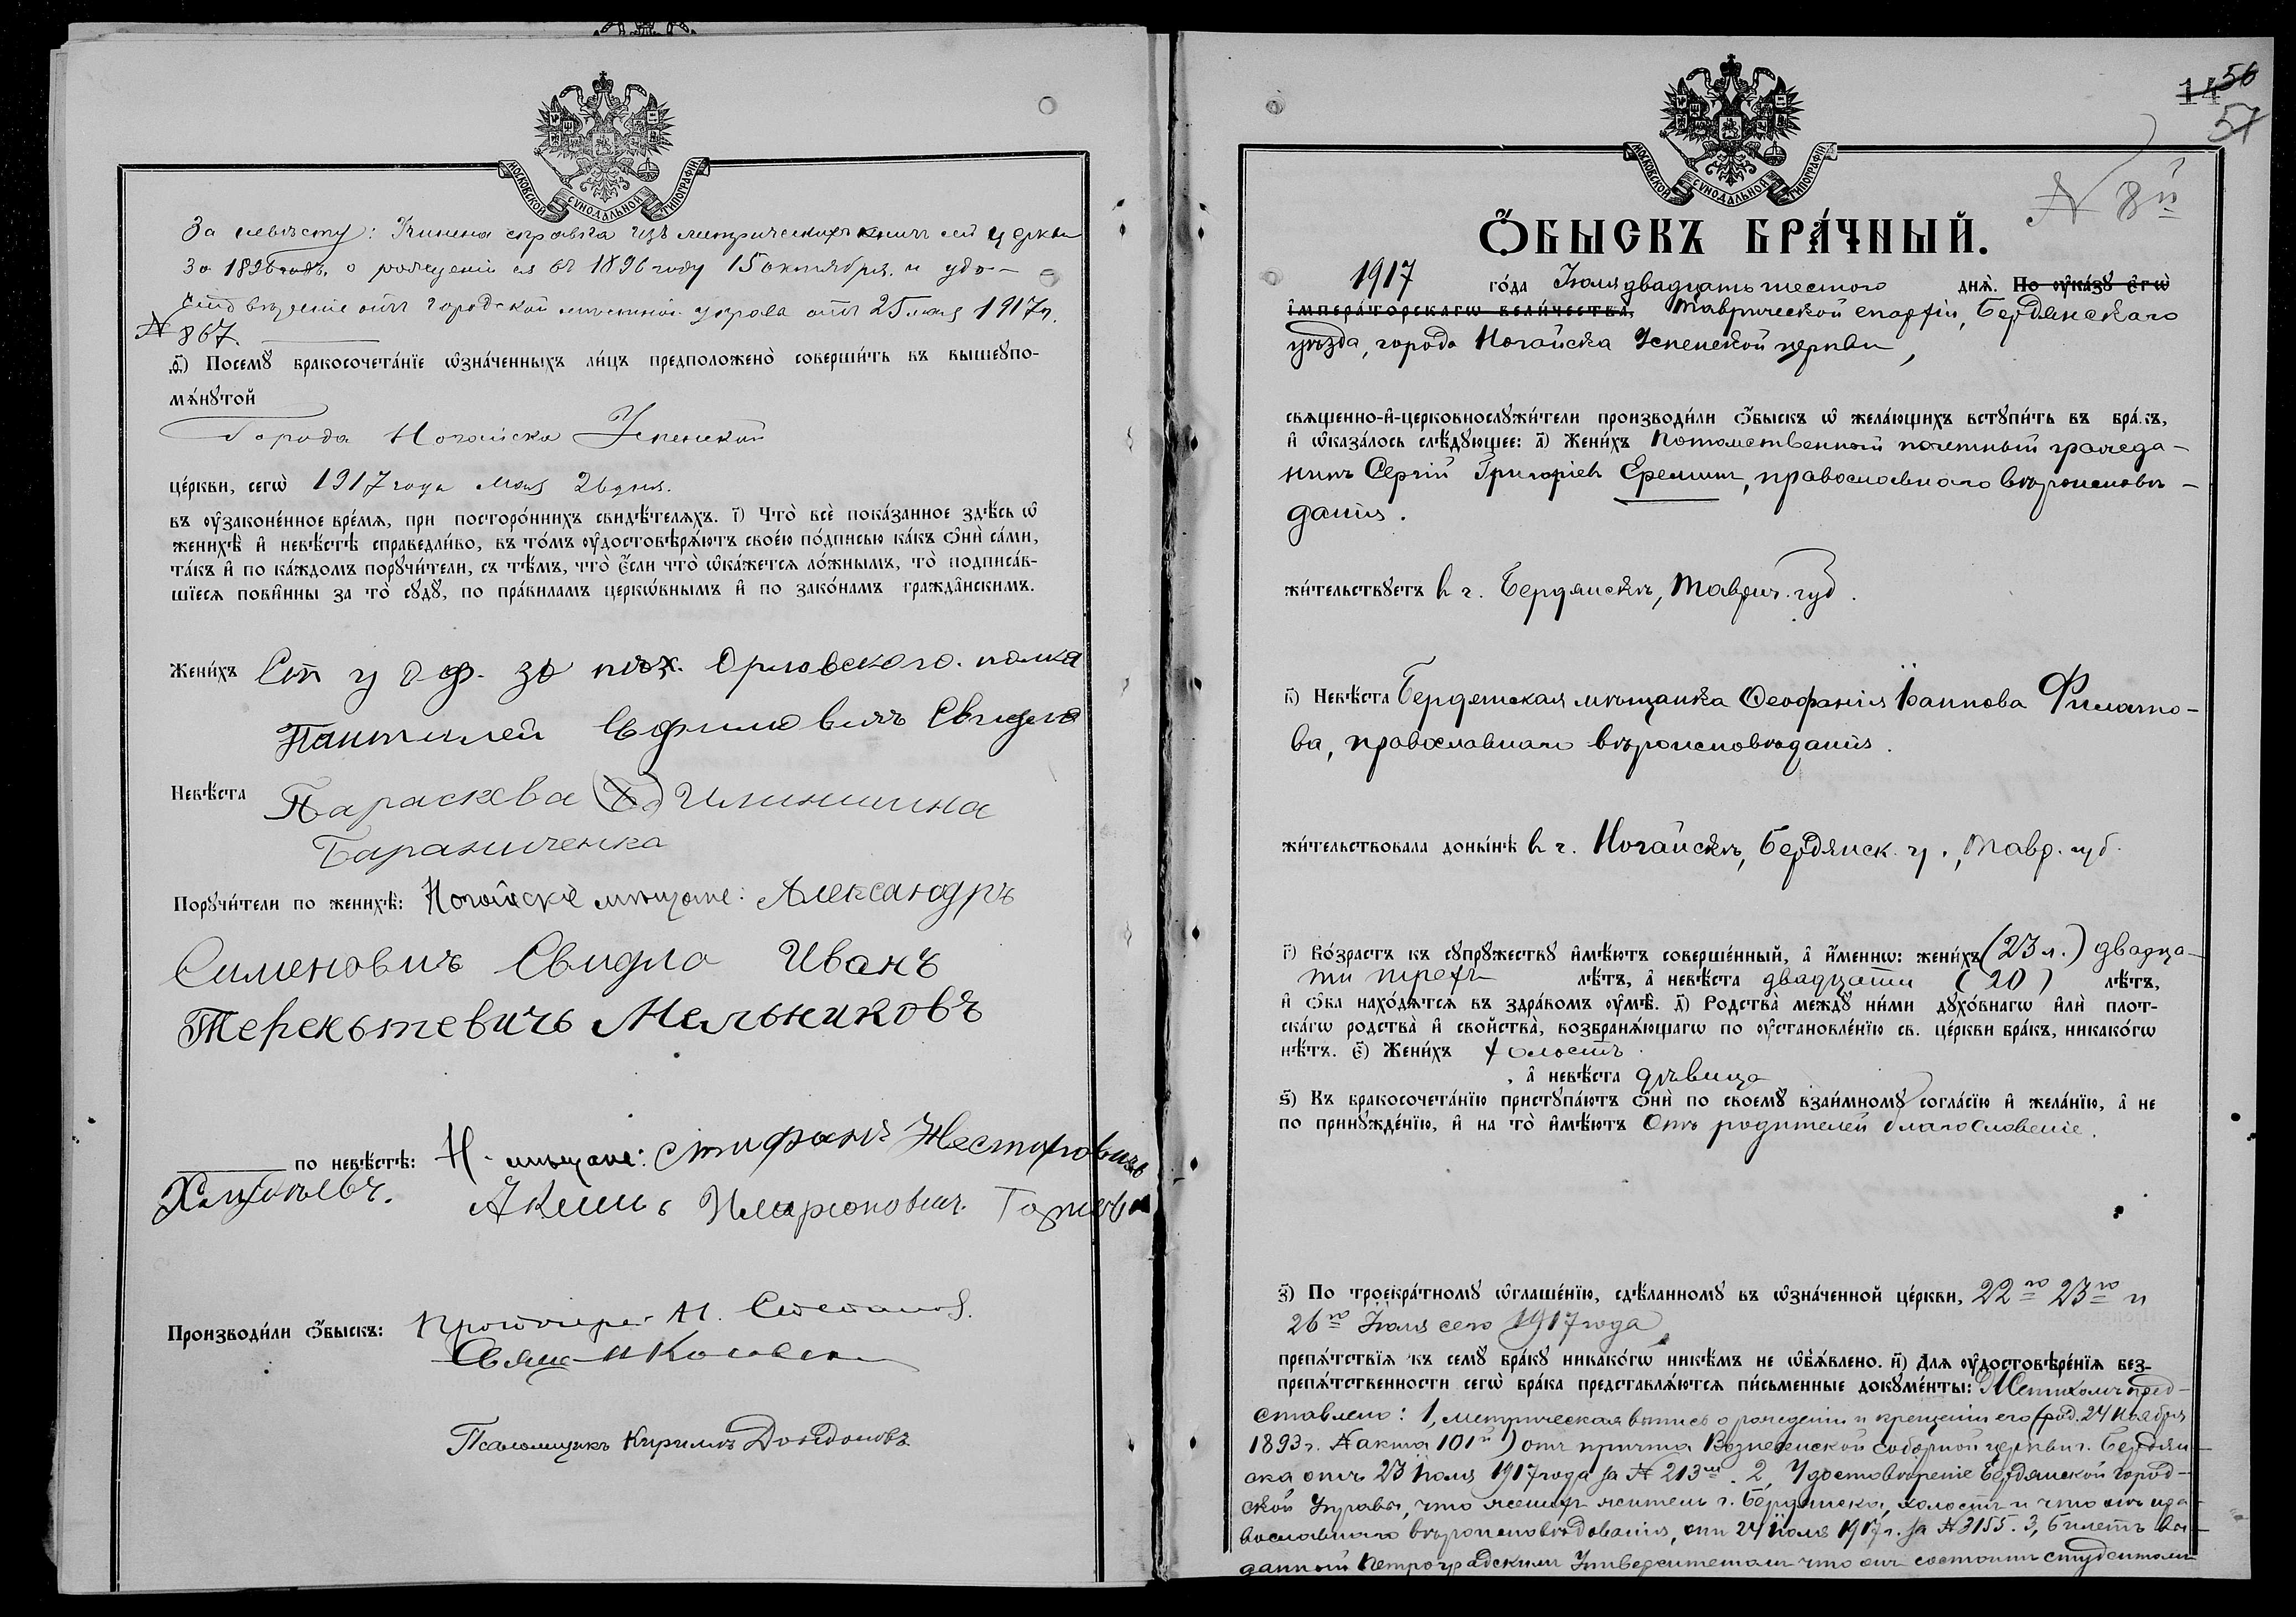 МОСКОВСКОЙ СѴНОДАЛЬНОЙ ТИПОГРАФІИ
За невѣсту: Учинена справка изъ метрическихъ книгъ сей церкви
за 1896 годъ, о рожденіи ея въ 1896 году 15 октября. и удо-
стовѣреніе отъ городской управа отъ 25 мая 1917 г.
№ 867.
ѳ҃) Посемꙋ̀ бракосочета́нїе ѡ҆зна́ченныхъ ли́цъ предположено̀ соверши́ть въ вышеꙋпо-
мѧ́нꙋтой
Города Ногайска Успенской
це́ркви, сегѡ̀ 1917 года мая 26 дня.
въ ᲂу҆законе́нное вре́мѧ, при посторо́ннихъ свидѣ́телѧхъ. і҃) Что̀ всѐ пока́занное здѣ́сь ѡ҆
женихѣ̀ и҆ невѣ́стѣ справедли́во, въ то́мъ ᲂу҆достовѣрѧ́ютъ свое́ю по́дписью ка́къ ѻ҆нѝ са́ми,
та́къ и҆ по ка́ждомъ порꙋчи́тели, съ тѣ́мъ, что̀ є҆́сли что̀ ѡ҆ка́жется ло́жнымъ, то̀ подписа́в-
шїеся пови́нны за то̀ сꙋдꙋ̀, по пра́виламъ церко́внымъ и҆ по зако́намъ гражда́нскимъ.
Жени́хъ Ст у оф. 36 пѣх. Орловского. полка
Пантилей Ефимовичъ Свидло
Невѣ́ста Параскева Илинишна
Бараниченка
Порꙋчи́тели по женихѣ̀: Ногайскіе мѣщане: Александръ
Сименовичъ Свидло Иванъ
Терентьевичъ Мельниковъ
по невѣ́стѣ: Н. мѣщане: Стифанъ Нестировичъ
Акимъ Иларионовичъ
Производи́ли ѻ҆́быскъ: Протоиерей Н. Степанов.
Свящ. Н Косовск
Псаломщикъ Кирилъ Дондоновъ
14 56
57
МОСКОВСКОЙ СѴНОДАЛЬНОЙ ТИПОГРАФІИ
№ 8й
Ѻ҆́БЫСКЪ БРА́ЧНЫЙ.
1917 го́да Іюля двадцать шестого днѧ̀. По ᲂу҆ка́зꙋ є҆гѡ̀
і҆мпера́торскагѡ вели́чества, Таврической епархіи, Бердянскаго
уѣзда, города Ногайска Успенской церкви,
свѧщенно-и҆-церковнослꙋжи́тели производи́ли ѻ҆́быскъ ѡ҆ жела́ющихъ встꙋпи́ть въ бра́къ,
и҆ ѡ҆каза́лось слѣ́дꙋющее: а҃) Жени́хъ потомственный почетный гражда-
нинъ Сергій Григоріев Еремин, православнаго вѣроисповѣ-
данія.
жи́тельствꙋетъ в г. Бердянскѣ, Таврич. губ.
в҃) Невѣ́ста Бердянская мѣщанка Ѳеофанія Іоаннова Филато-
ва, православнаго вѣроисповѣданія.
жи́тельствовала доны́нѣ в г. Ногайскѣ, Бердянск. у., Тавр. губ.
г҃) Во́зрастъ къ сꙋпрꙋ́жествꙋ и҆мѣ́ютъ соверше́нный, а҆ и҆́меннѡ: жени́хъ (23 л.) двадца-
ти трехъ лѣ́тъ, а҆ невѣ́ста двадцати (20) лѣ́тъ,
и҆ ѻ҆́ба нахо́дѧтсѧ въ здра́вомъ ᲂу҆мѣ̀. д҃) Родства̀ междꙋ̀ ни́ми дꙋхо́внагѡ и҆лѝ плот-
ска́гѡ родства̀ и҆ сво́йства, возбранѧ́ющагѡ по ᲂу҆становле́нїю св. це́ркви бра́къ, никако́гѡ
нѣ́тъ. є҃) Жени́хъ холостъ.
, а҆ невѣ́ста дѣвица
ѕ҃) Къ бракосочета́нїю пристꙋпа́ютъ ѻ҆нѝ по своемꙋ̀ взаи́мномꙋ согла́сїю и҆ жела́нїю, а҆ не
по принꙋжде́нїю, и҆ на то̀ и҆мѣ́ютъ отъ родителей благословеніе.
з҃) По троекра́тномꙋ ѡ҆глаше́нїю, сдѣ́ланномꙋ въ ѡ҆зна́ченной це́ркви, 22го 23го и
26го Іюля сего 1917 года
препѧ́тствїѧ къ семꙋ̀ бра́кꙋ никако́гѡ никѣ́мъ не ѡ҆б̾ѧ́влено. и҃) Для ᲂу҆достовѣре́нїѧ без-
препѧ́тственности сегѡ̀ бра́ка представлѧ́ются пи́сьменные докꙋме́нты: Женихомъ пред-
ставлено: 1, метрическая выпись о рожденіи и крещеніи его (род. 24 ноября
1893 г. № акта 101й) отъ причта Вознесенской соборной церкви г. Бердян-
ска отъ 23 іюля 1917 года за № 213м. 2, Удостовѣреніе Бердянской город-
ской Управы, что женихъ житель г. Бердянска, холостъ и что онъ пра-
вославнаго вѣроисповѣдованія, отъ 24 іюля 1917 г. за № 3155. 3, билетъ вы-
данный Петроградскимъ Университетомъ что онъ состоитъ студентомъ